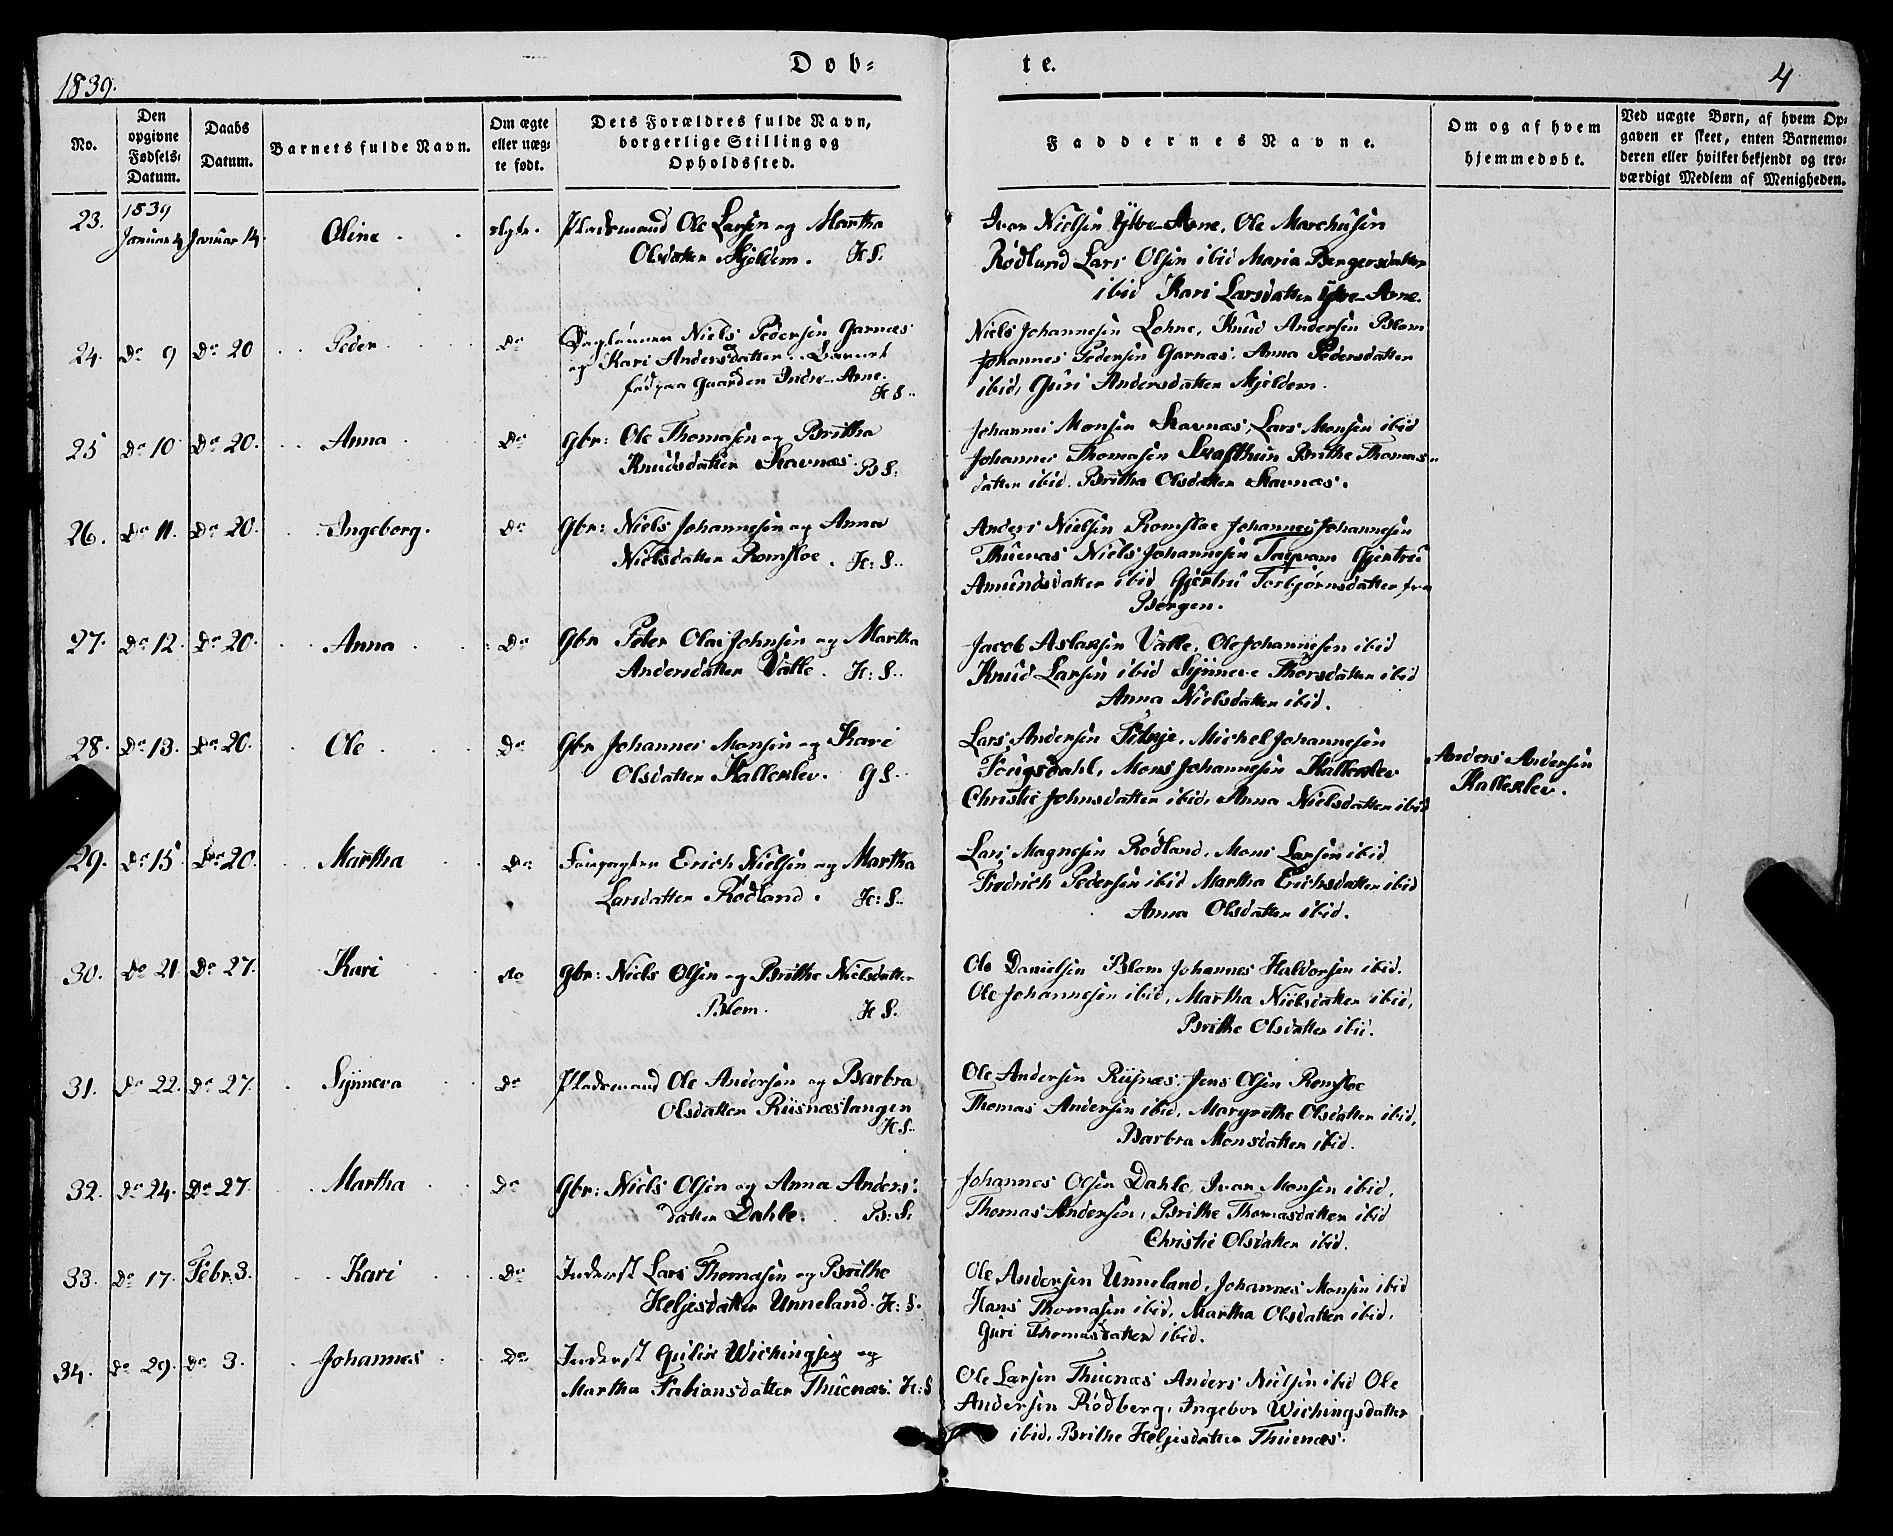 1839.
Døb-
te.
4
No.
Den opgivne Fødsels-Datum.
Daabs Datum.
Barnets fulde Navn.
Om ægte eller uæg-te født.
Dets Forældres fulde Navn, borgerlige Stilling og Opholdssted.
Faddernes Navne.
Om og af hvem hjemmedøbt.
Ved uægte Børn, af hvem Op-
gaven er skeet, enten Barnemo-
deren eller hvilket bekjendt og tro-
værdigt Medlem af Menigheden.
1839
23. Januar 4 Januar 14. Oline Ægte. Pladsmand Ole Larsen og Martha
Olsdatter Mjeldem. H S.
Ivar Nielsen Ytre-Arne, Ole Marchusen
Rødland Lars Olsen ibid Maria Bergersdatter
ibid Kari Larsdatter Ytre-Arne.
24. Do 9 Do 20 Peder Do Daglønner Niels Pedersen Garnæs
og Kari Andersdatter. Barnet
fød paa Gaarden Indre-Arne.
H S.
Niels Johannesen Lohne, Knud Andersen Blom
Johannes Pedersen Garnæs, Anna Pedersdatter
ibid, Guri Andersdatter Mjeldem.
25 Do 10 Do 20. Anna Do Gbr: Ole Thomasen og Britha
Knudsdatter Stavnæs. B S.
Johannes Monsen Stavnæs Lars Monsen ibid
Johannes Thomasen Brithe Thomas-
datter ibid. Britha Olsdatter Stavnæs.
26. Do 11. Do 20. Ingeborg. Do Gbr: Niels Johannesen og Anna
Nielsdatter Romsloe. H: S.
Anders Nielsen Romsloe Johannes Johannesen
Thuenæs Niels Johannesen Gjertru
Amundsdatter ibid Gjertru Torbjørnsdatter fra
Bergen.
27. Do 12. Do 20. Anna Do Gbr Peter Olai Johnsen og Martha
Andersdatter Valle. H: S.
Jacob Aslaksen Valle, Ole Johannesen ibid
Knud Larsen ibid Synneve Thorsdatter ibid
Anna Nielsdatter ibid.
28. Do 13. Do 20. Ole Do Gbr Johannes Monsen og Kari
Olsdatter Kalleklev. G S.
Lars Andersen Michel Johannesen
Fougsdahl, Mons Johannesen Kalleklev
Christie Johnsdatter ibid, Anna Nielsdatter ibid
Anders Andersen
Kalleklev.
29. Do 15 Do 20. Martha Do Erich Nielsen og Martha
Larsdatter Rødland. H: S.
Lars Magnesen Rødland, Mons Larsen ibid
Fredrich Pedersen ibid Martha Erichsdatter ibid
Anna Olsdatter ibid.
30. Do 21 Do 27. Kari do Gbr: Niels Olsen og Brithe Nielsdatter
Blom. H S.
Ole Danielsen Blom Johannes Haldorsen ibid.
Ole Johannesen ibid, Martha Nielsdatter ibid,
Brithe Olsdatter ibid.
31. Do 22. Do 27. Synneva Do Pladsmand Ole Andersen og Barbra
Olsdatter Riisnæstangen
H S.
Ole Andersen Riisnæs, Jens Olsen Romsloe
Thomas Andersen ibid, Margrethe Olsdatter ibid,
Barbra Monsdatter ibid.
32. Do 24. Do 27 Martha Do Gbr: Niels Olsen og Anna Anders-
datter Dahle. B: S.
Johannes Olsen Dahle, Ivar Monsen ibid,
Thomas Andersen, Brithe Thomasdatter ibid
Christie Olsdatter ibid.
33. Do 17. Febr. 3. Kari Do Inderst Lars Thomasen og Brithe
Heljesdatter Unneland. H: S.
Ole Andersen Unneland, Johannes Monsen ibid
Hans Thomasen ibid, Martha Olsdatter ibid,
Guri Thomasdatter ibid.
34. Do 29. Do 3. Johannes Do Inderst Wichingsen og
Martha Fabiansdatter Thuenæs. H: S
Ole Larsen Thuenæs Anders Nielsen ibid Ole
Andersen Rødberg, Ingebor Wichingsdatter
ibid, Brithe Heljesdatter Thuenæs.